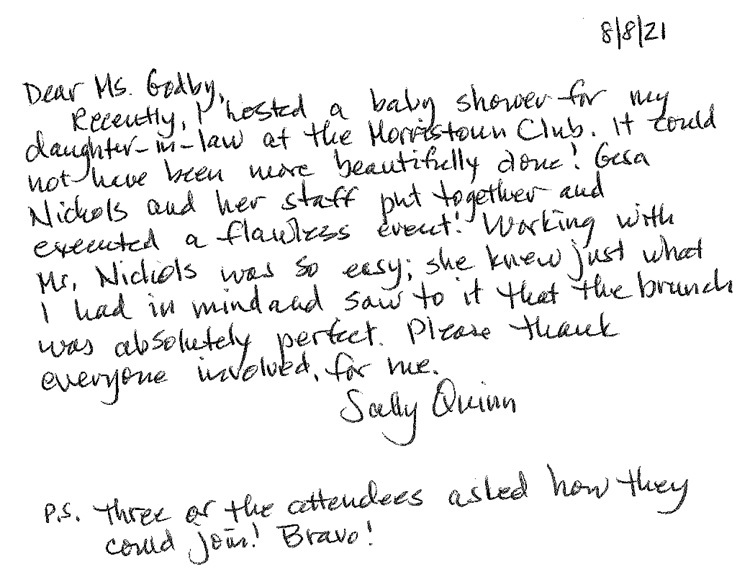 8/8/21
Dear Ms. Godby,
Recently, I hosted a baby shower for my
daughter-in-law at the Morristown Club. It could
not have been more beautifully done! Gesa
Nichols and her staff put together and
executed a flawless event! Working with
Ms. Nichols was so easy; she knew just what
I had in mind and saw to it that the brunch
was absolutely perfect. Please thank
everyone involved, for me.
Sally Quinn
P.S. Three of the attendees asked how they
could join! Bravo!